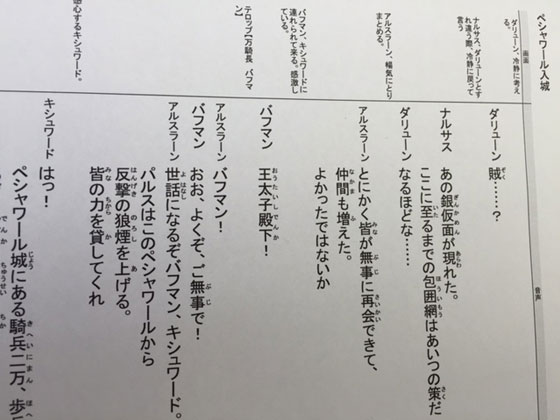 ペシャワール入城
画面
音声
ダリューン、冷静に考え
る。
ダリューン 賊……?
ナルサス、ダリューンとす
れ違う際、冷静に戻って
言う
ナルサス あの銀仮面が現れた。
ここに至るまでの包囲網はあいつの策だ
ダリューン なるほどな……
アルスラーン、暢気にとり
まとめる。
アルスラーン とにかく皆が無事に再会できて、
仲間も増えた。
よかったではないか
バフマン、キシュワードに
連れられて来る。感激し
ている。
テロップ【万騎長 バフマ
ン】
バフマン 王太子殿下!
アルスラーン バフマン!
バフマン おお、よくぞ、ご無事で!
アルスラーン 世話になるぞ、バフマン、キシュワード。
パルスはこのペシャワールから
反撃の狼煙を上げる。
皆の力を貸してくれ
心するキシュワード。
キシュワード はっ!
ペシャワール城にある騎兵二万、歩